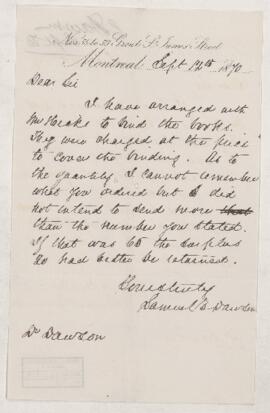 Nos. 55 to 59 Great St. James Street
Montreal Sept 12th 1870
Dear Sir
I have arranged with
Mr Drake to bind the books.
They were charged at the price
to cover the binding. As to
the quantity I cannot remember
what you ordered but I did
not intend to send more that
than the number you stated.
If that was 65 the surplus
20 had better be returned.
Yours truly
Samuel E Dawson
Dr Dawson